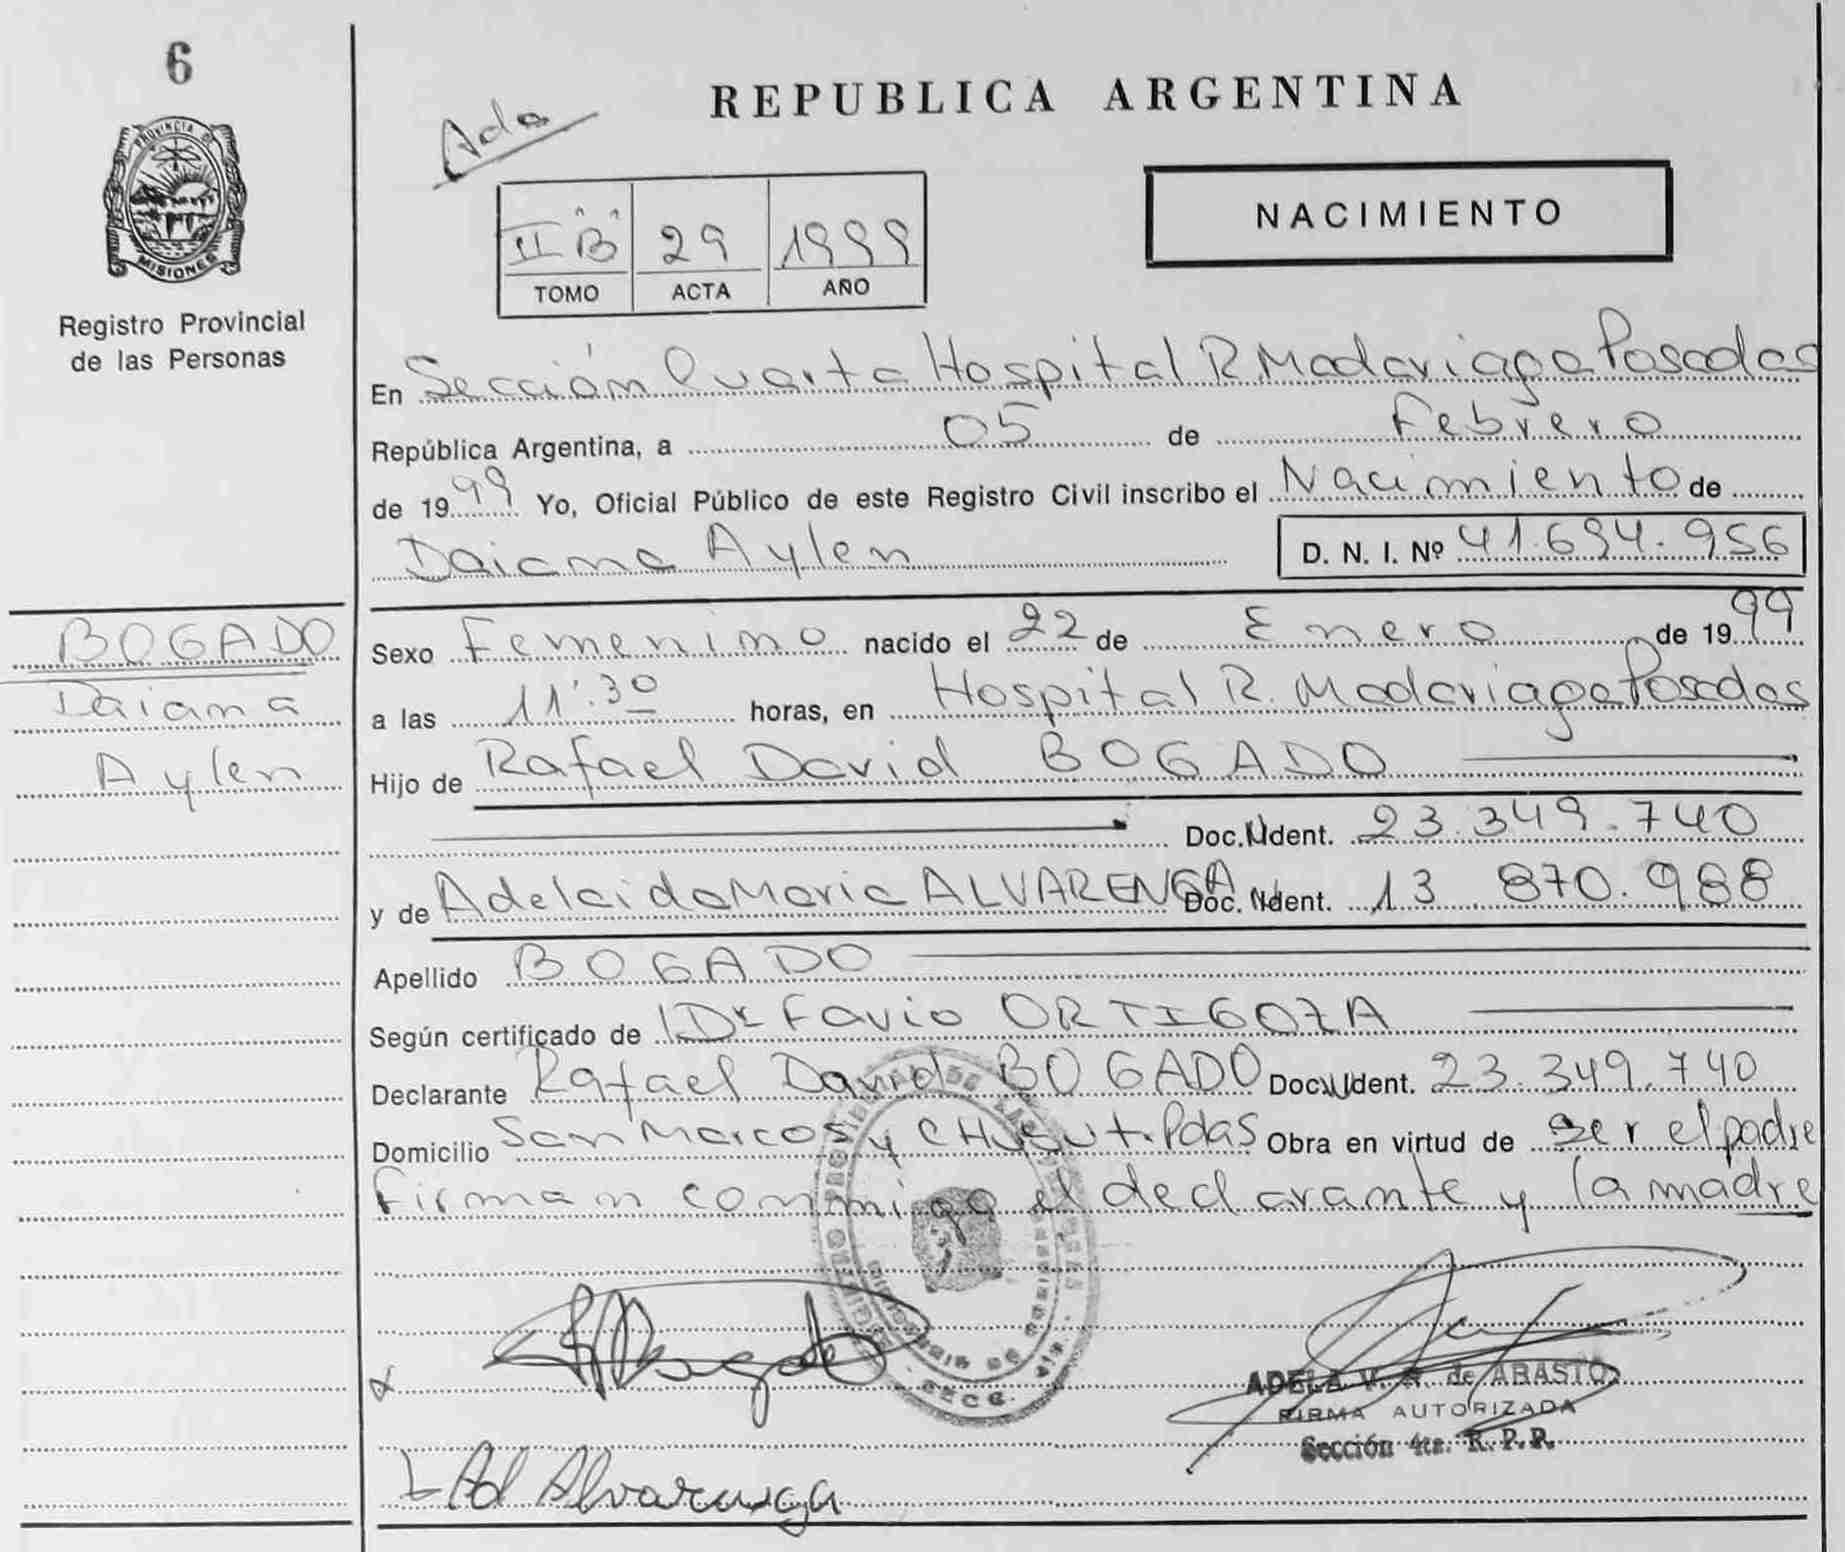 6
PROVINCIA DE
MISIONES
Registro Provincial
de las Personas
REPUBLICA ARGENTINA
NACIMIENTO
II B 29 1999
TOMO ACTA AÑO
En Sección Cuarta Hospital R. Madariaga Posadas
República Argentina, a 05 de Febrero
de 1999 Yo, Oficial Público de este Registro Civil inscribo el Nacimiento de
Daiana Aylen D. N. I. Nº 41.694.956
BOGADO
Daiana
Aylen
Sexo Femenino nacido el 22 de Enero de 1999
a las 11:30 horas, en Hospital R. Madariaga Posadas
Hijo de Rafael David BOGADO
Doc. Ident. 23.349.740
y de Adelaida Maria ALVARENGA Doc. Ident. 13.870.988
Apellido BOGADO
Según certificado de Dr Favio ORTIGOZA
Declarante Rafael David BOGADO Doc. Ident. 23.349.740
Domicilio San Marcos y CHubut. Pdas Obra en virtud de ser el padre
Firman conmigo el declarante y la madre
ADELA V. de ABASTO
FIRMA AUTORIZADA
Sección 4ta. R. P. P.
Ad Alvarenga